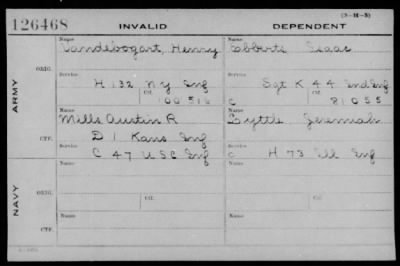 (3—M—3)
126468 INVALID DEPENDENT
Name Name
Vandebogart, Henry Ebberts Isaac
ORIG.
Service Service
H 132 NY Inf Sgt K 44 Ind Inf
Ctf. Ctf.
100516 C 81055
ARMY
Name Name
Mills Austin R Lyttle Jeremiah
Service
CTF. D 1 Kans Inf
C 47 USC Inf C H 73 Ill Inf
Name Name
ORIG.
Service Ctf. Service Ctf.
NAVY
Name Name
CTF.